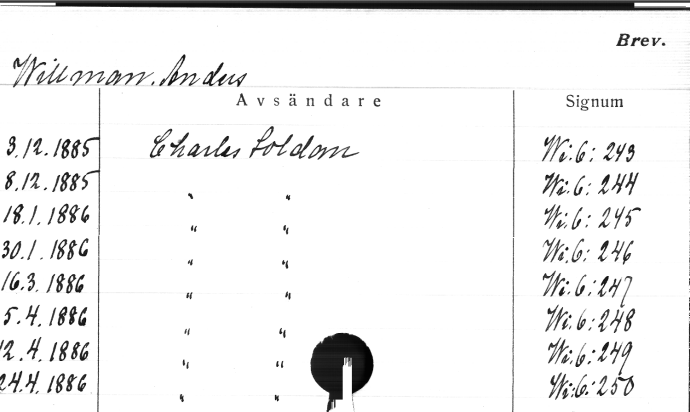 Brev.
Willman. Anders
Avsändare Signum
3.12.1885 Charles Soldan Wi.6: 243
8.12.1885 " " Wi.6: 244
18.1.1886 " " Wi.6: 245
30.1.1886 " " Wi.6: 246
16.3.1886 " " Wi.6: 247
5.4.1886 " " Wi.6: 248
12.4.1886 " " Wi.6: 249
24.4.1886 " " Wi.6: 250